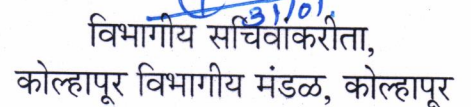 31/01,
विभागीय सचिवांकरीता,
कोल्हापूर विभागीय मंडळ, कोल्हापूर